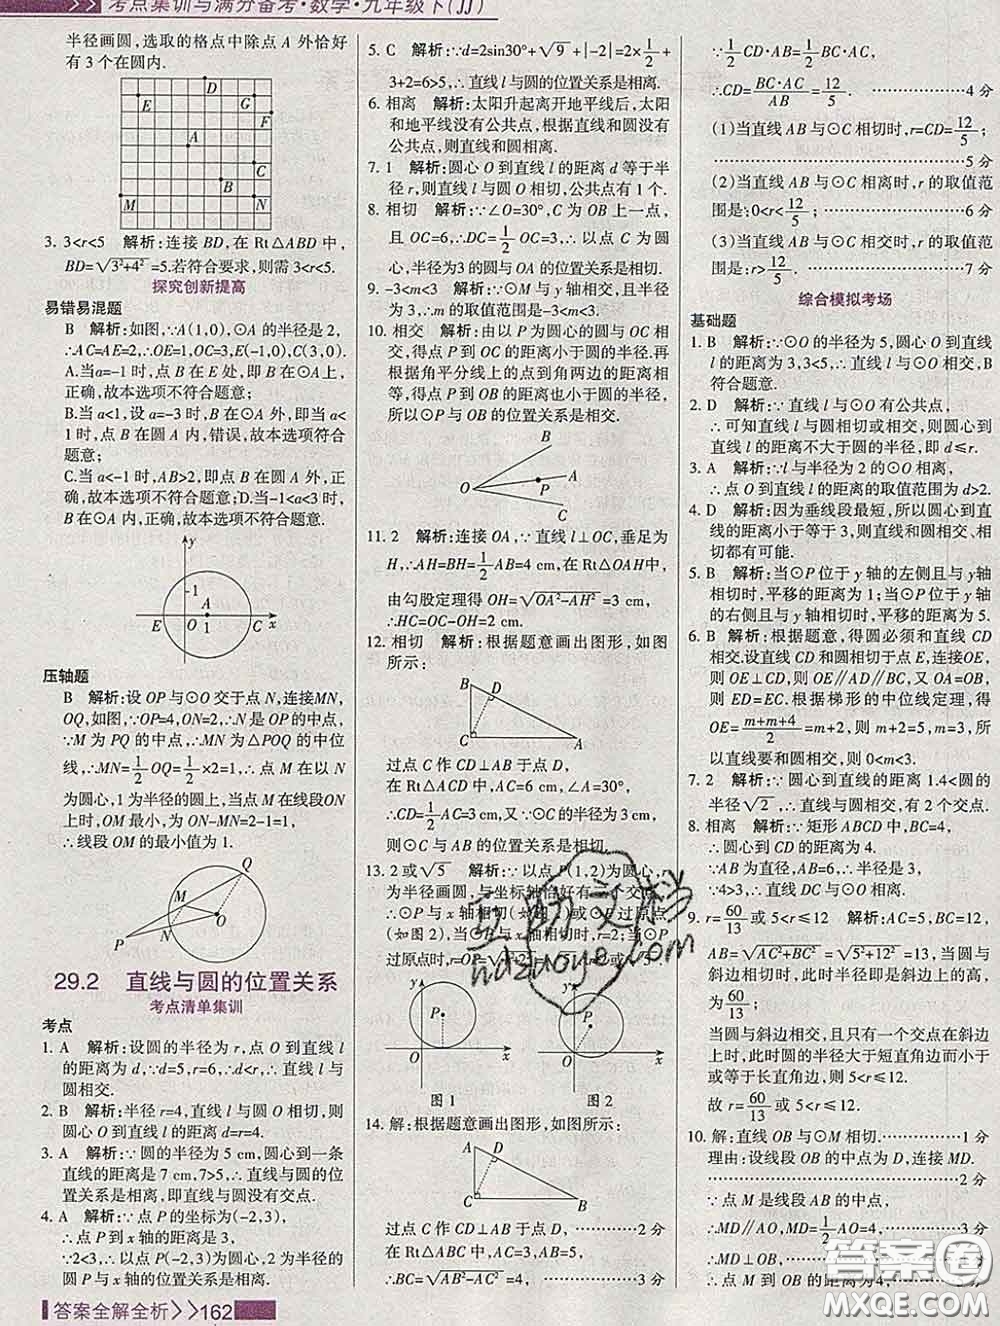 考点集训与满分备考·数学·九年级下(JJ)
半径画圆,选取的格点中除点 A 外恰好
有 3 个在圆内.
D
E
G
F
A
C
B
M
N
3. 3<r<5 解析:连接 BD,在 Rt△ABD 中,
BD=√3²+4²=5.若符合要求,则需 3<r<5.
探究创新提高
易错易混题
B 解析:如图,∵A(1,0),⊙A 的半径是 2,
∴AC=AE=2,∴OE=1,OC=3,E(-1,0),C(3,0).
A.当a=-1 时,点 B 在 E 处,即 B 在⊙A上,
正确,故本选项不符合题意;
B.当 a<1,设 a=-3 时,B 在⊙A 外,即当 a<
1时,点 B 在圆 A 内,错误,故本选项符合
题意;
C.当 a<-1 时,AB>2,即点 B 在圆 A 外,正
确,故本选项不符合题意;D.当-1<a<3 时,
B 在⊙A内,正确,故本选项不符合题意.
y
1
A
E
O
1
C
x
压轴题
B 解析:设 OP 与⊙O 交于点 N,连接MN,
OQ,如图,∵OP=4,ON=2,∴N 是 OP 的中点,
∵M 为 PQ 的中点,∴MN 为△POQ 的中位
线,∴MN=1/2 OQ=1/2×2=1,∴点 M 在以 N
为圆心,1 为半径的圆上,当点 M 在线段ON
上时,OM 最小,为 ON-MN=2-1=1,
∴线段 OM 的最小值为 1.
Q
M
O
P
N
29.2 直线与圆的位置关系
考点清单集训
考点
1. A 解析:设圆的半径为 r,点 O 到直线 l
的距离为 d,∵d=5,r=6,∴d<r,∴直线 l 与
圆相交.
2. B 解析:半径 r=4,直线 l 与圆 O 相切,则
圆心 O 到直线 l 的距离 d=r=4.
3. A 解析:∵圆的半径为 5 cm,圆心到一条
直线的距离是 7 cm,7>5,∴直线与圆的位
置关系是相离,即直线与圆没有交点.
4. A 解析:∵点 P 的坐标为(-2,3),
∴点 P 到 x 轴的距离是 3,
∵2<3,∴以点 P(-2,3)为圆心,2 为半径的
圆 P 与 x 轴的位置关系是相离.
答案全解全析>>162
5. C 解析:∵d=2sin30°+√9+|-2|=2×1/2+
3+2=6>5,∴直线 l 与圆的位置关系是相离.
6. 相离 解析:太阳升起离开地平线后,太阳
和地平线没有公共点,根据直线和圆没有
公共点,则直线和圆相离.
7. 1 解析:圆心 O 到直线 l 的距离 d 等于半
径 r,则直线 l 与圆 O 相切,公共点有 1 个.
8. 相切 解析:∵∠O=30°,C 为 OB 上一点,
且 OC=6,∴DC=1/2 OC=3,∴以点 C 为圆
心,半径为3 的圆与 OA 的位置关系是相切.
9. -3<m<3 解析:∵⊙M 与 y 轴相交,且半径
为 3,∴m 的取值范围是-3<m<3.
10. 相交 解析:由以 P 为圆心的圆与 OC 相
交,得点 P 到 OC 的距离小于圆的半径.再
根据角平分线上的点到角两边的距离相
等,得点 P 到 OB 的距离也小于圆的半径,
所以⊙P 与 OB 的位置关系是相交.
B
A
O
P
C
11. 2 解析:连接 OA,∵直线 l⊥OC,垂足为
H,∴AH=BH=1/2 AB=4 cm,在 Rt△OAH 中,
由勾股定理得 OH=√OA²-AH²=3 cm,
∴HC=OC-OH=2 cm.
12. 相切 解析:根据题意画出图形,如图
所示:
B
D
C
A
过点 C 作 CD⊥AB 于点 D,
在 Rt△ACD 中,AC=6 cm,∠A=30°,
∴CD=1/2 AC=3 cm,又∵⊙C 的半径为 3 cm,
则⊙C 与 AB 的位置关系是相切.
13. 2 或√5 解析:∵以点 P(1,2)为圆心,r
为半径画圆,与坐标轴恰好有三个交点,
∴⊙P 与 x 轴相切(如图 1)或⊙P 过原点
(如图 2),当⊙P 与 x 轴相切时,r=2;当⊙
P过原点时,r=√1²+2²=√5.
y
P
O
x
图 1
y
P
O
x
图 2
14. 解:根据题意画出图形,如图所示:
A
D
C
B
过点 C 作 CD⊥AB 于点 D, …………2 分
在 Rt△ABC 中,
∴BC=√AB²-AC²=4, …………3 分
∵1/2 CD·AB=1/2 BC·AC,
∴CD=BC·AC/AB=12/5. …………4 分
(1)当直线 AB 与⊙C 相切时,r=CD=12/5;
…………5 分
(2)当直线 AB 与⊙C 相离时,r 的取值范
围是:0<r<12/5; …………6 分
(3)当直线 AB 与⊙C 相交时,r 的取值范
围是:r>12/5. …………7 分
综合模拟考场
基础题
1. B 解析:∵⊙O 的半径为 5,圆心 O 到直线
l 的距离为 3,3<5,∴直线 l 与⊙O 相交,B
符合题意.
2. D 解析:∵直线 l 与⊙O 有公共点,
∴可知直线 l 与圆相切或相交,则圆心 O 到
直线 l 的距离不大于圆的半径,即 d≤r.
3. A 解析:∵l 与半径为 2 的⊙O 相离,
∴点 O 到直线 l 的距离的取值范围为 d>2.
4. D 解析:因为垂线段最短,所以圆心到直
线的距离小于等于 3,则直线和圆相交、相
切都有可能.
5. B 解析:当⊙P 位于 y 轴的左侧且与 y轴
相切时,平移的距离为 1;当⊙P 位于 y 轴
的右侧且与 y 轴相切时,平移的距离为 5.
6. B 解析:根据题意,得圆必须和直线 CD
相交.设直线 CD 和圆相切于点 E,连接OE,
则 OE⊥CD,则 OE∥AD∥BC,又 OA=OB,
则 ED=EC.根据梯形的中位线定理,得
OE=(m+m+4)/2=m+2,则 m+2=5,m=3,
所以直线要和圆相交,则 0<m<3.
7. 2 解析:∵圆心到直线的距离 1.4<圆的
半径√2,∴直线与圆相交,有 2 个交点.
8. 相离 解析:∵矩形 ABCD 中,BC=4,
∴圆心到 CD 的距离为 4.
∵AB 为直径,AB=6,∴半径是 3.
∵4>3,∴直线 DC 与⊙O 相离.
9. r=60/13 或 5<r≤12 解析:AC=5,BC=12,
AB=√AC²+BC²=√5²+12²=13,当圆与
斜边相切时,此时半径即是斜边上的高,
为60/13;
当圆与斜边相交,且只有一个交点在斜边
上时,此时圆的半径大于短直角边而小于
或等于长直角边,则 5<r≤12.
故 r=60/13 或 5<r≤12.
10. 解:直线 OB 与⊙M 相切.…………1 分
理由:设线段 OB 的中点为 D,连接 MD.
…………2 分
∵点 M 是线段 AB 的中点,
∴MD∥AO,MD=1/2 AO=4.…………3 分
∵MD⊥OB,
∴点 M 到 OB 的距离为4,
互助文档
hdzuoye.com
答案圈
MXQE.COM